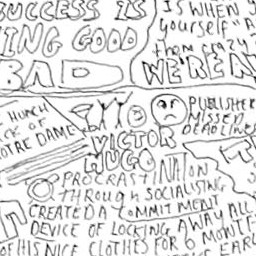 SUCCESS IS
ING GOOD
BAD
IS WHEN
yourself "A
them crazy
WE'RE N
HUNCH
CK OF
OTRE DAME
PUBLISHER
MISSED
DEADLINES
VICTOR
HUGO
PROCRASTINATION
through SOCIALISING
CREATED A COMMITMENT
DEVICE OF LOCKING AWAY ALL
OF HIS NICE CLOTHES FOR 6 MONTHS